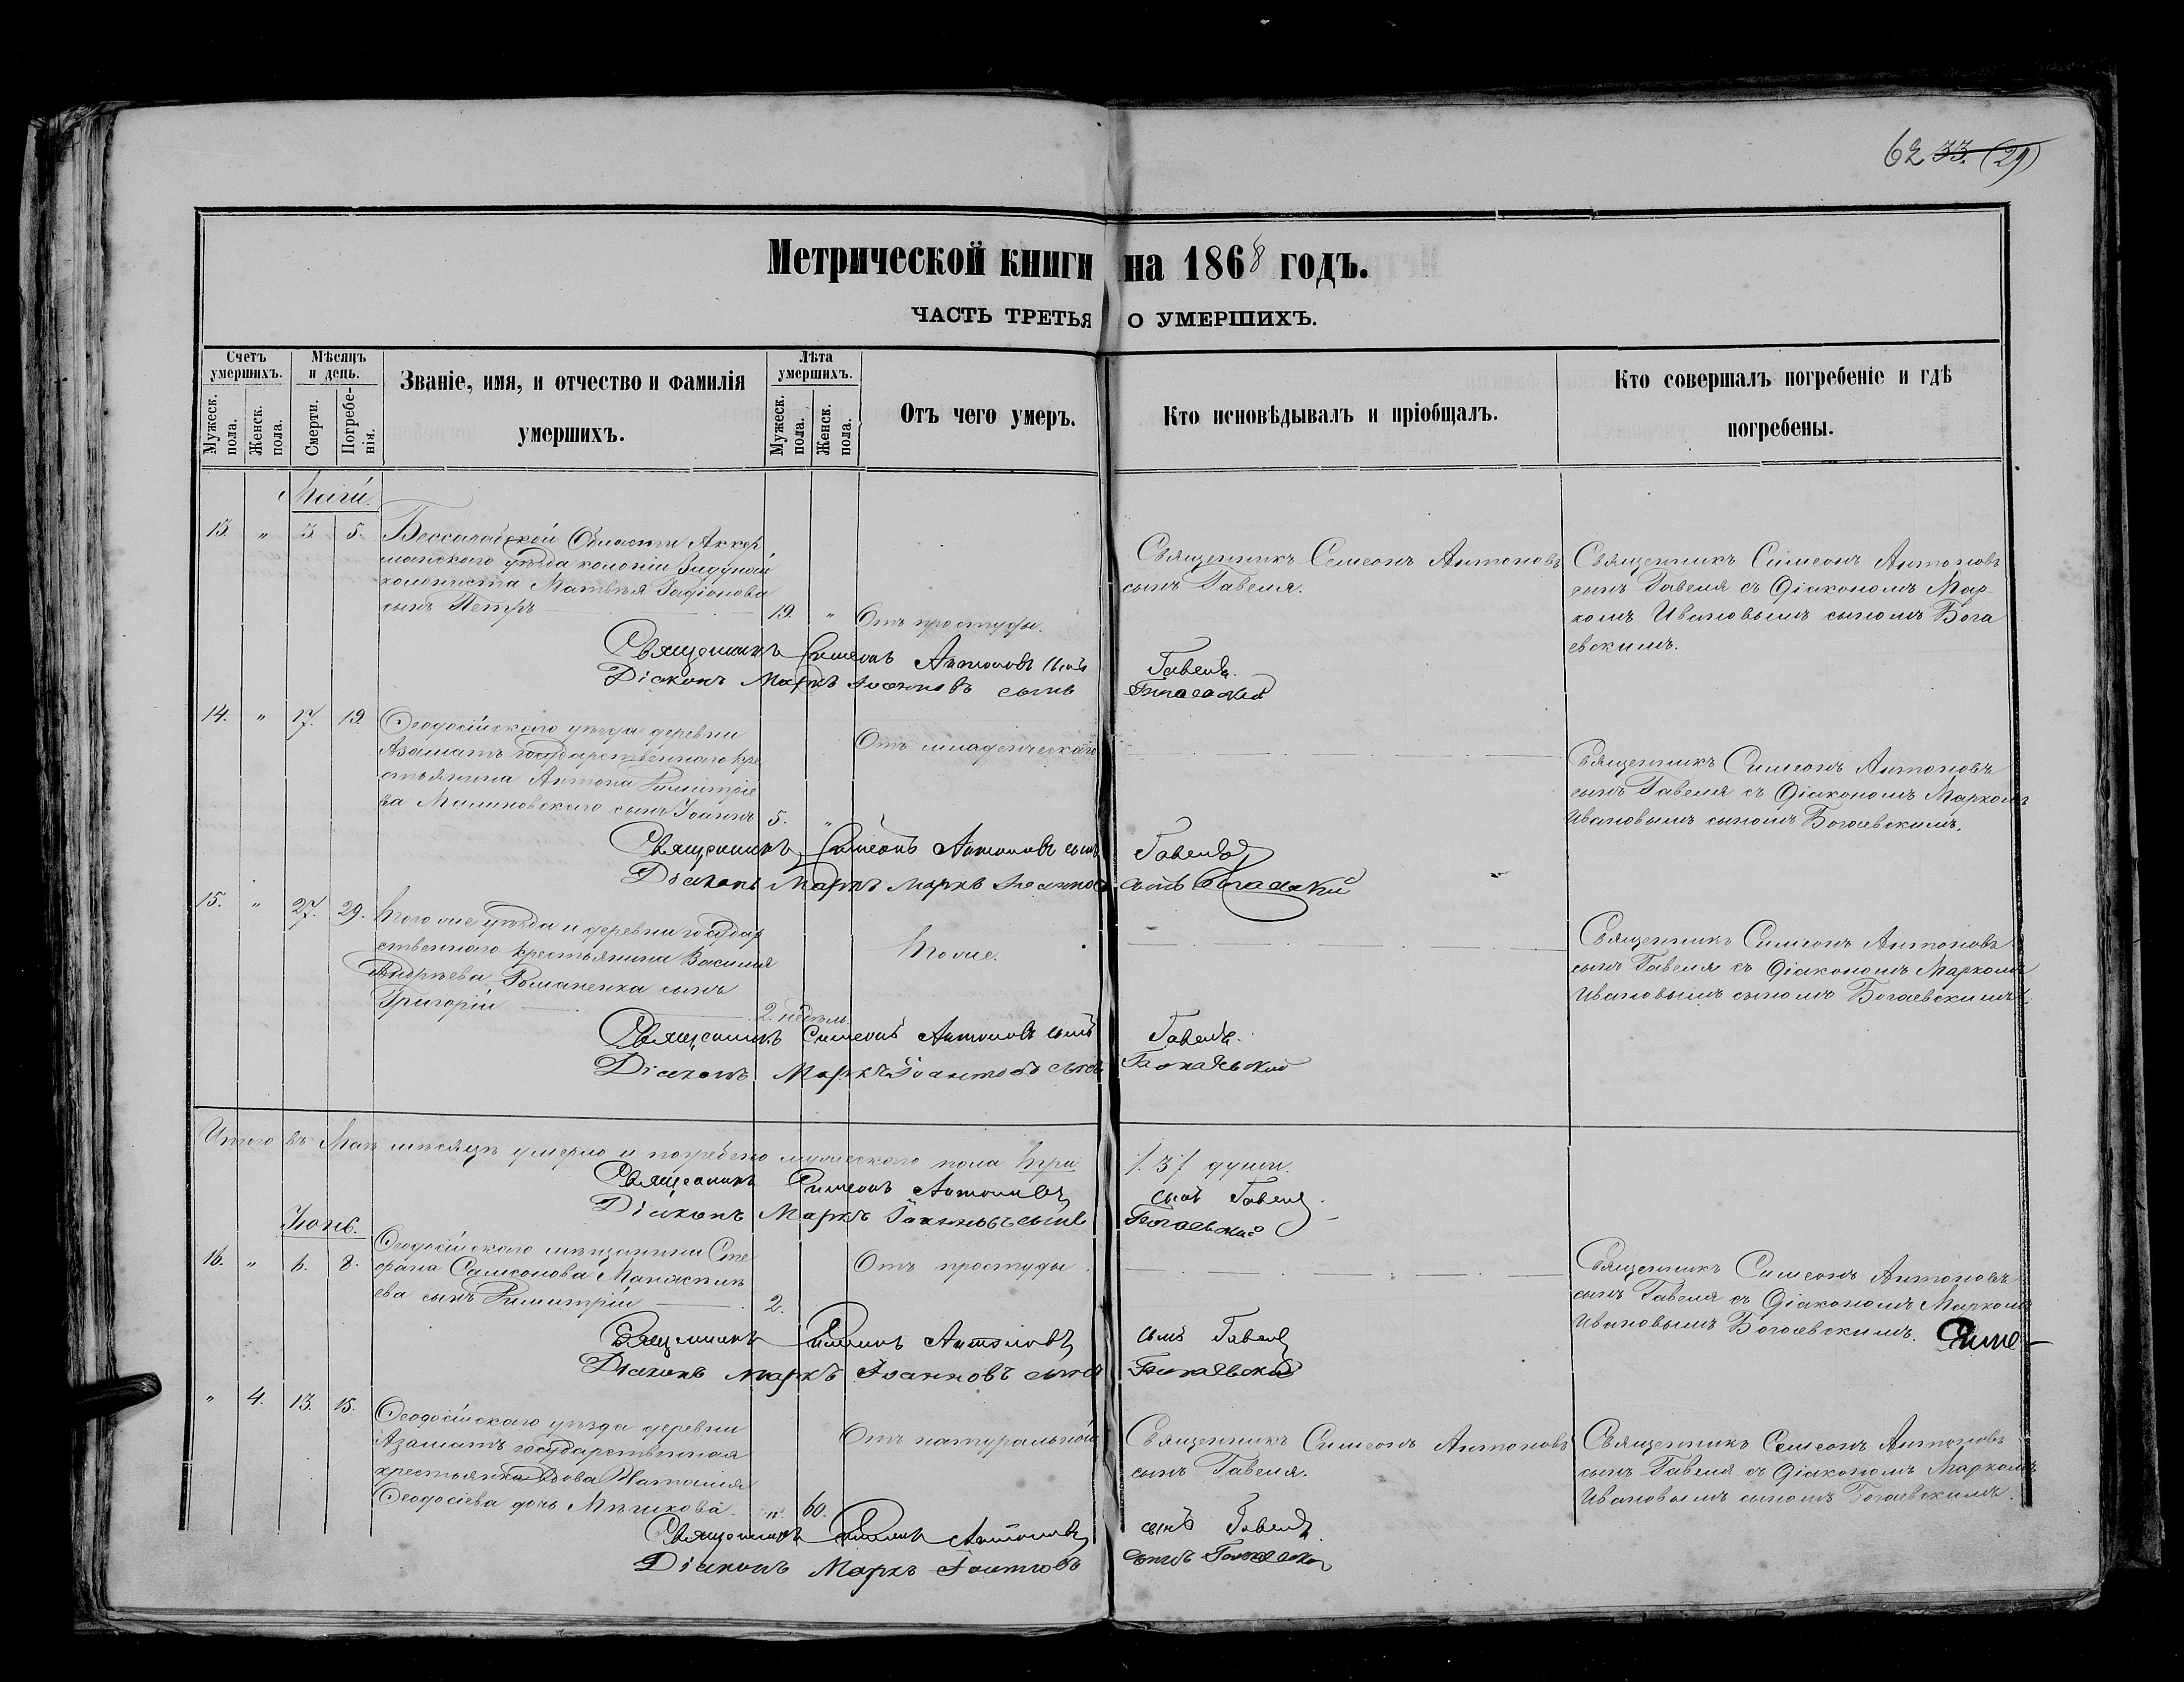 62 33. (29)
Метрической книги на 1868 годъ.
ЧАСТЬ ТРЕТЬЯ О УМЕРШИХЪ.
Счетъ умершихъ.
Мужеск. пола.
Женск. пола.
Мѣсяцъ и день.
Смерти.
Погребе-нія.
Званіе, имя, и отчество и фамилія
умершихъ.
Лѣта умершихъ.
Мужеск. пола.
Женск. пола.
Отъ чего умеръ.
Кто исповѣдывалъ и пріобщалъ.
Кто совершалъ погребеніе и гдѣ
погребены.
Маій.
13. „ 3 5. Бессарабской Области Аккер
манскаго уѣзда колоніи Задунай
колониста Матвѣя Радіонова
сынъ Петръ 19. „ Отъ простуды.
Священникъ Семеонъ Антоновъ
сынъ Гавеля.
Священникъ Симеонъ Антоновъ
сынъ Гавеля съ Діакономъ Мар-
комъ Ивановымъ сыномъ Бога
евскимъ.
Священникъ Симеонъ Антоновъ сынъ Гавеля.
Діаконъ Маркъ Іоанновъ сынъ Богаевскій
14. „ 17. 19. Ѳеодосійскаго уѣзда деревни
Азаматъ государственнаго кре
стьянина Антона Димитріе
ва Малиновскаго сынъ Іоаннъ 5. „
Отъ младенческаго
Священникъ Симеонъ Антоновъ
сынъ Гавеля съ Діакономъ Маркомъ
Ивановымъ сыномъ Богаевскимъ.
Священникъ Симеонъ Антоновъ сынъ Гавеля
Діаконъ Маркъ Маркъ Іоанновъ сынъ Богаевскій
15. „ 27. 29. Того же уѣзда и деревни государ
ственнаго крестьянина Василія
Андреева Романенка сынъ
Григорій 2. недѣль.
Тоже.
Священникъ Симеонъ Антоновъ
сынъ Гавеля съ Діакономъ Маркомъ
Ивановымъ сыномъ Богаевскимъ.
Священникъ Симеонъ Антоновъ сынъ Гавеля.
Діаконъ Маркъ Іоанновъ сынъ Богаевский
Итого въ Маѣ мѣсяцѣ умерло и погребено мужескаго пола три /.3/ души.
Священникъ Симеонъ Антоновъ сынъ Гавеля.
Діаконъ Маркъ Іоанновъ сынъ Богаевский
Іюнь.
16. „ 6. 8. Ѳеодосійскаго мѣщанина Сте
фана Самсонова
ева сынъ Димитрій 2.
Отъ простуды.
Священникъ Симеонъ Антоновъ
сынъ Гавеля съ Діакономъ Маркомъ
Ивановымъ Богаевскимъ.
Священникъ Симеонъ Антоновъ сынъ Гавеля
Діаконъ Маркъ Іоанновъ сынъ Богаевский
„ 4. 13. 15. Ѳеодосійскаго уѣзда деревни
Азаматъ государственная
крестьянка вдова Наталія
Ѳеодосіева дочь Мѣшкова. „ 60.
Отъ натуральной
Священникъ Симеонъ Антоновъ
сынъ Гавеля.
Священникъ Семеонъ Антоновъ
сынъ Гавеля съ Діакономъ Маркомъ
Ивановымъ сыномъ Богаевскимъ.
Священникъ Симеонъ Антоновъ сынъ Гавеля
Діаконъ Маркъ Іоанновъ сынъ Богаевский